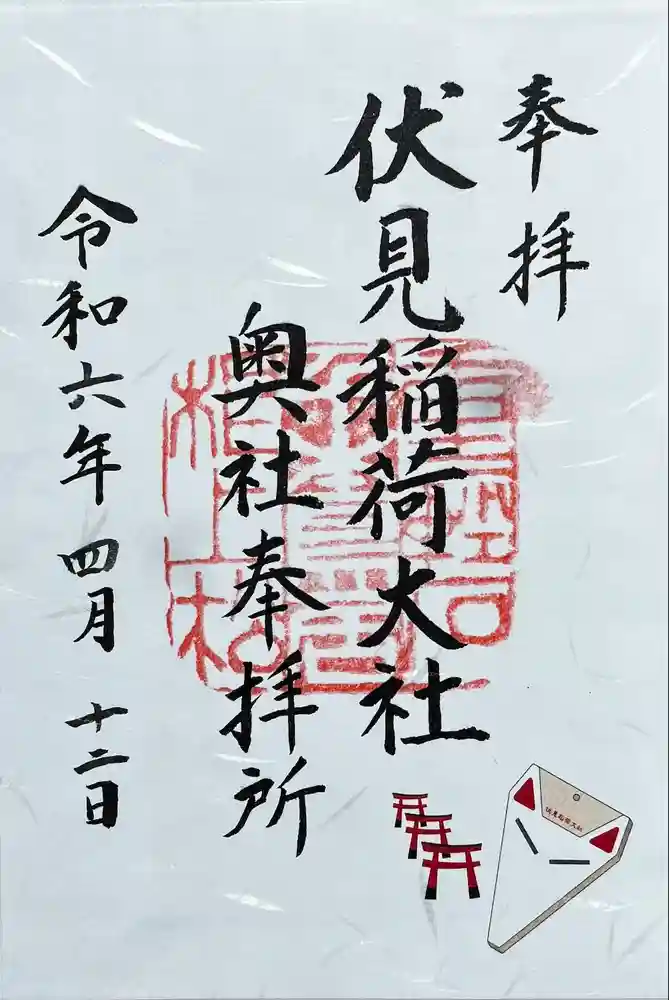 奉拝
伏見稲荷大社
奥社奉拝所
令和六年 四月 十二日
伏見稲荷大社